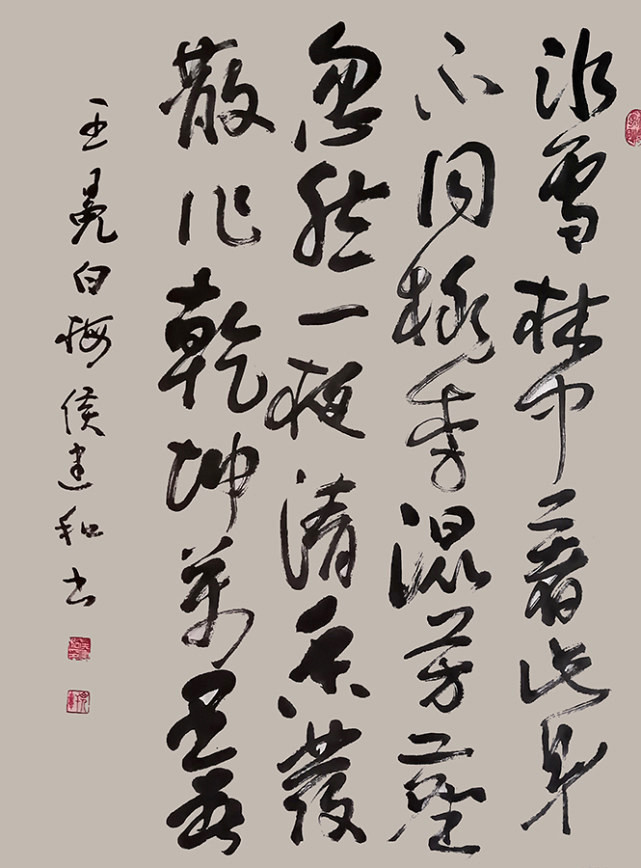 冰雪林中著此身
不同桃李混芳塵
忽然一夜清香發
散作乾坤萬里春
王冕白梅侯建和书